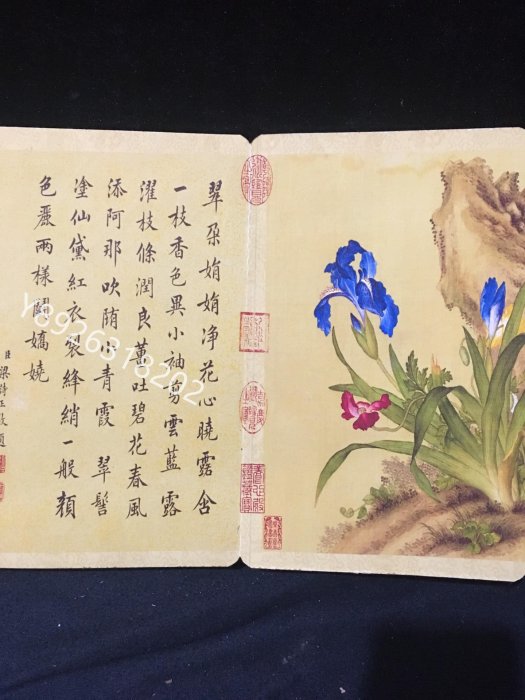 翠朵娟娟净花心曉露含
一枝香色異小袖剪雲藍露
濯枝條潤良薰吐碧花春風
添阿那吹堕小青霞 翠髻
塗仙黛紅衣裊絳綃一般顏
色嚴兩樣鬭嬌嬈
臣梁詩正敬題
Y8926318202